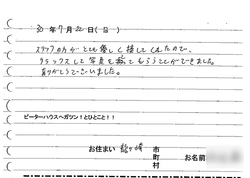 30年7月22日(日)
スタッフの方がとても優しく接してくれたので、
リラックスして写真を撮ってもらうことができました。
ありがとうございました。
ピーターハウスへガツン！とひとこと！！
お住まい 龍ヶ崎 市
町
村
お名前